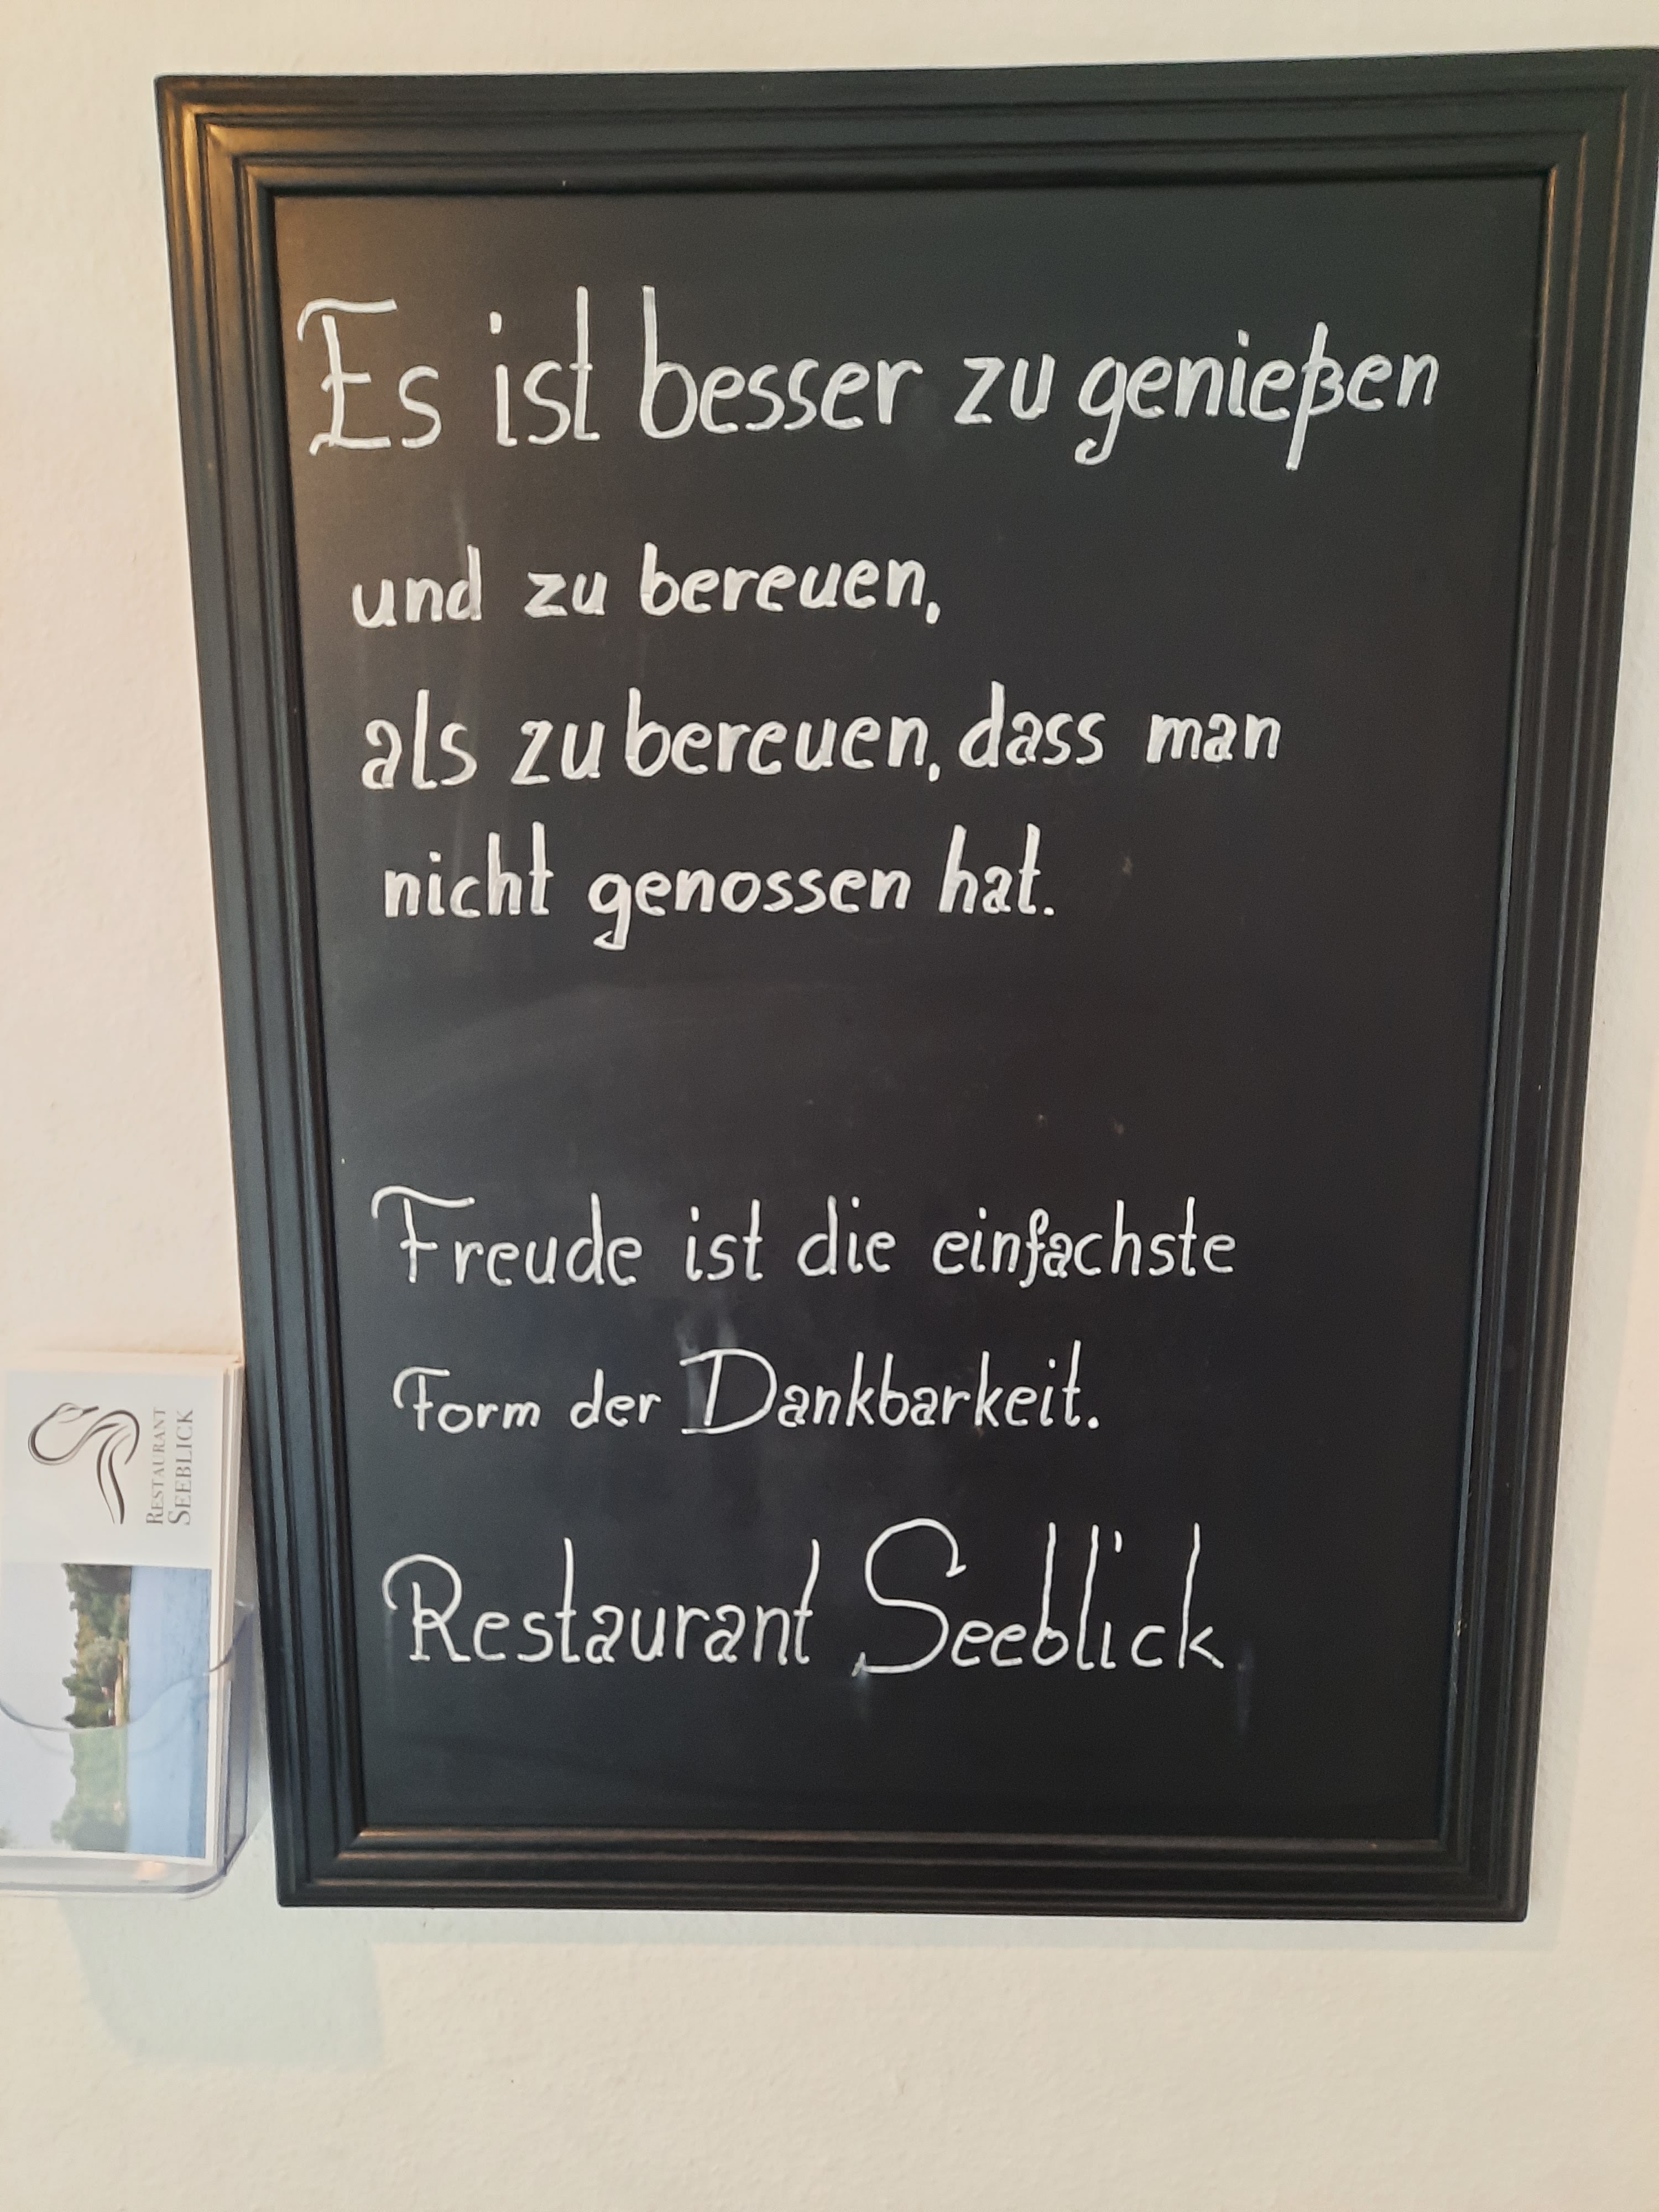 Es ist besser zu genießen
und zu bereuen,
als zu bereuen, dass man
nicht genossen hat.
Freude ist die einfachste
Form der Dankbarkeit.
Restaurant Seeblick
RESTAURANT
SEEBLICK